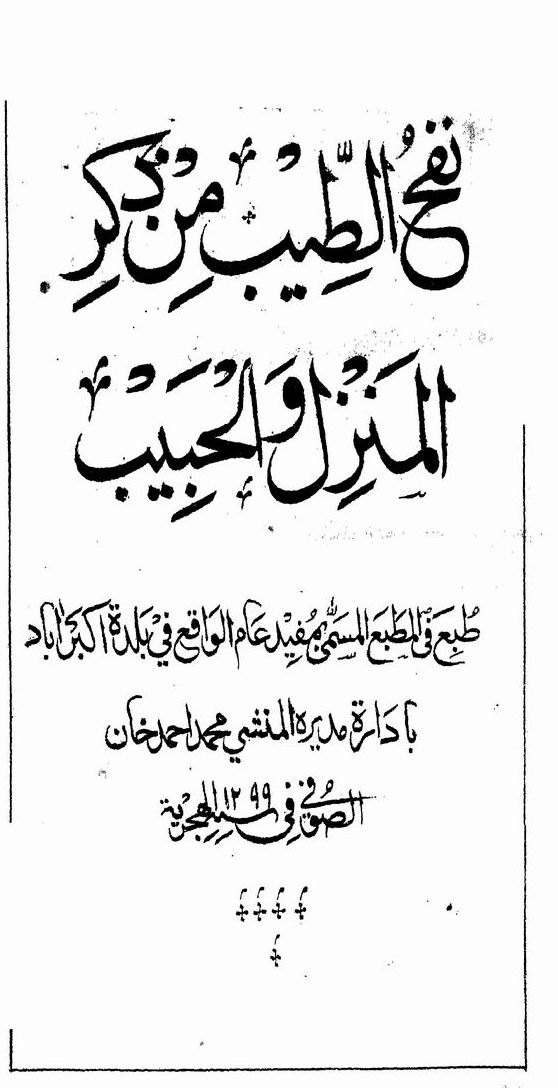 نفحُ الطِّيْبِ مِنْ ذِكرِ
المَنْزِلِ وَالْحَبِيْبِ
طُبِعَ فِی المَطبَعِ المُسَمّٰی بمُفِيْدِ عَام الوَاقِع فِيْ بَلدَة اكبَراٰباد
بادَارة مديرہ المنشي محمد احمد خان
الصُوْفي فِيْ ١٢٩٩ سنہ الهِجْرِيَّة